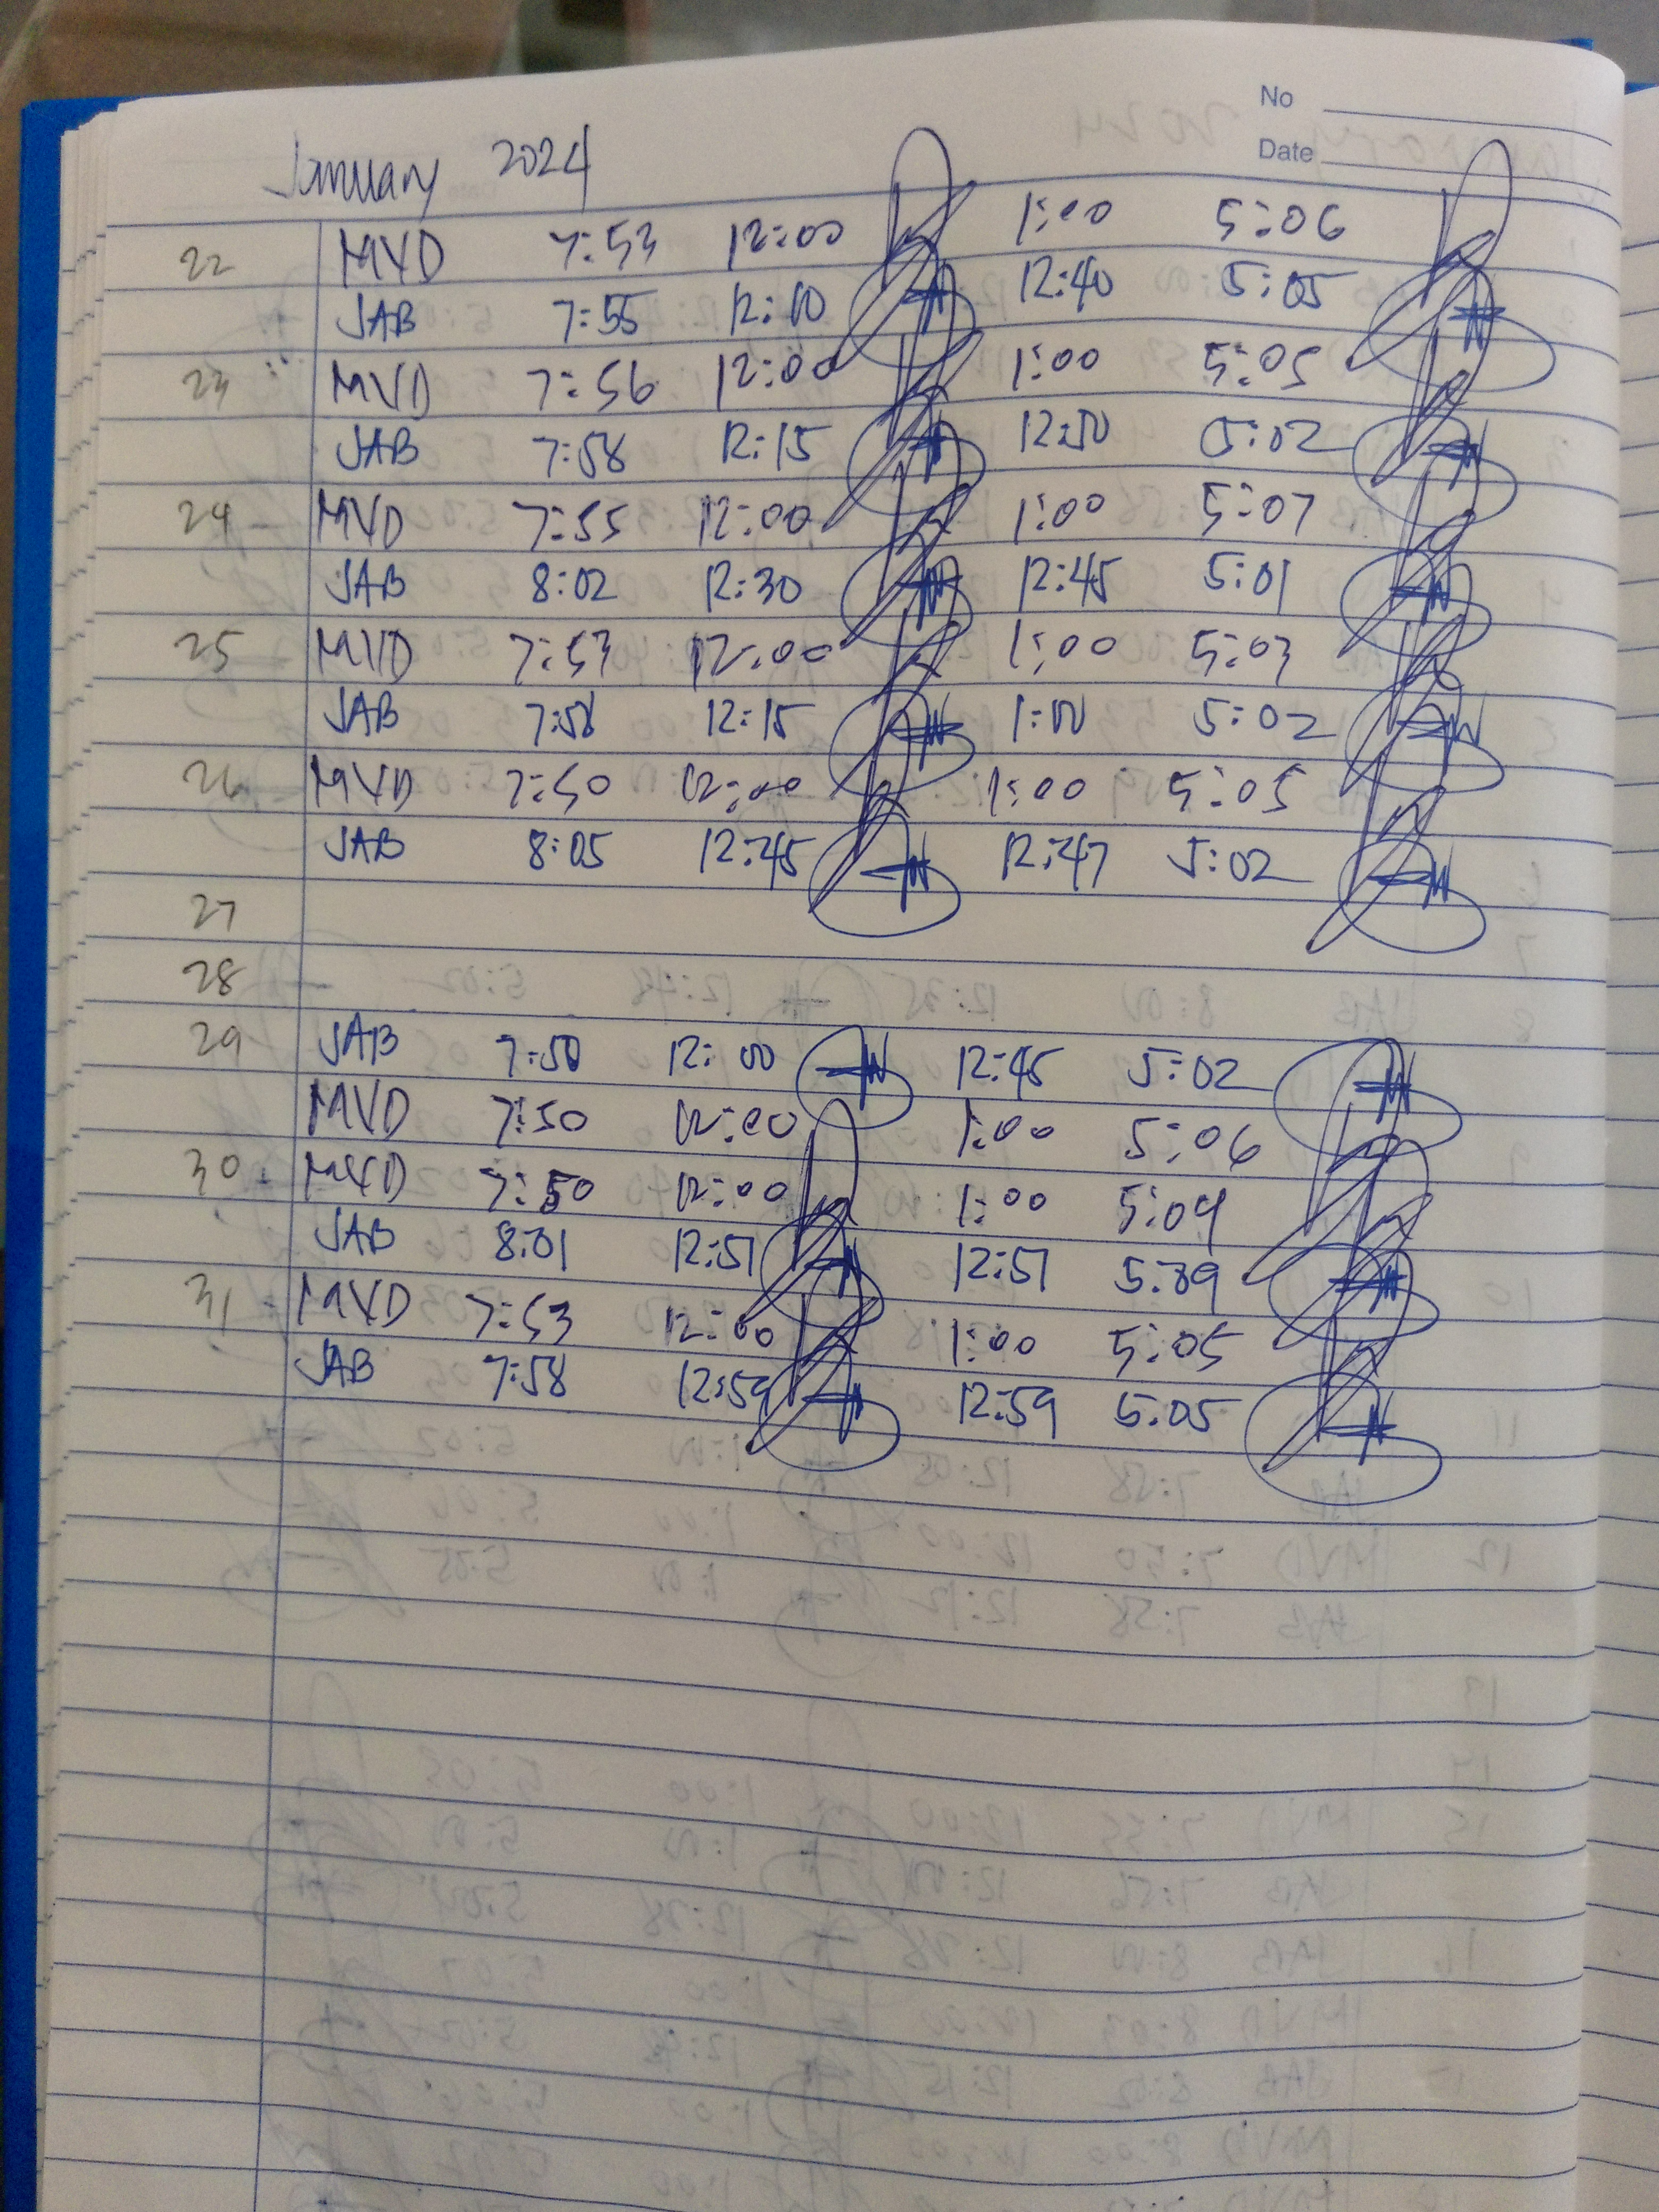 No
Date
January 2024
22 MVD 7:53 12:00 1:00 5:06
JAB 7:55 12:10 12:40 5:05
23 MVD 7:56 12:00 1:00 5:05
JAB 7:58 12:15 12:50 5:02
24 MVD 7:55 12:00 1:00 5:07
JAB 8:02 12:30 12:45 5:01
25 MVD 7:53 12:00 1:00 5:03
JAB 7:58 12:15 1:00 5:02
26 MVD 7:50 12:00 1:00 5:05
JAB 8:05 12:45 12:47 5:02
27
28
29 JAB 7:50 12:00 12:45 5:02
MVD 7:50 12:00 1:00 5:06
30 MVD 7:50 12:00 1:00 5:09
JAB 8:01 12:51 12:51
31 MVD 7:53 12:00 1:00 5:05
JAB 7:58 12:59 12:59 5:05